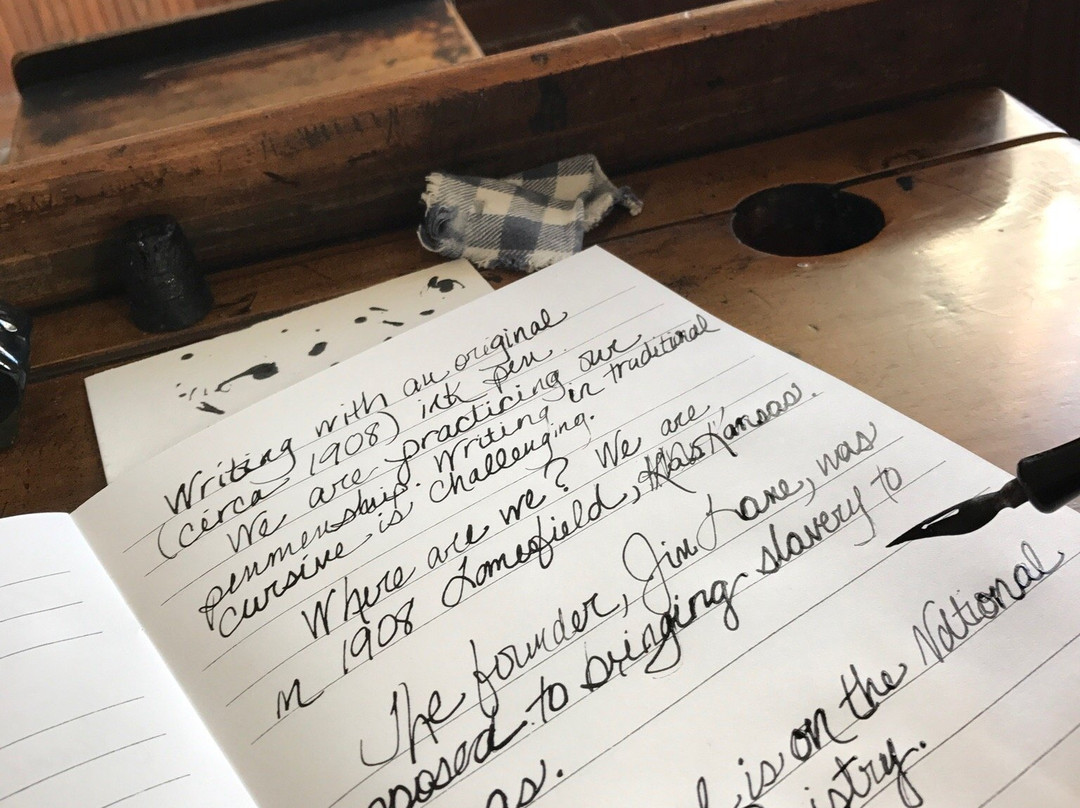 Writing with an original
(circa 1908) ink pen.
We are practicing our
penmenship. Writing in traditional
cursive is challenging.
Where are we? We are,
in 1908 Lanesfield, Kansas.
The founder, Jim Lane, was
pposed to bringing slavery to
as.
l is on the National
istry.